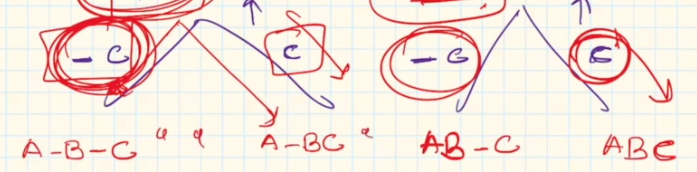 - C C - C C
A-B-C " " A-BC " AB-C ABC